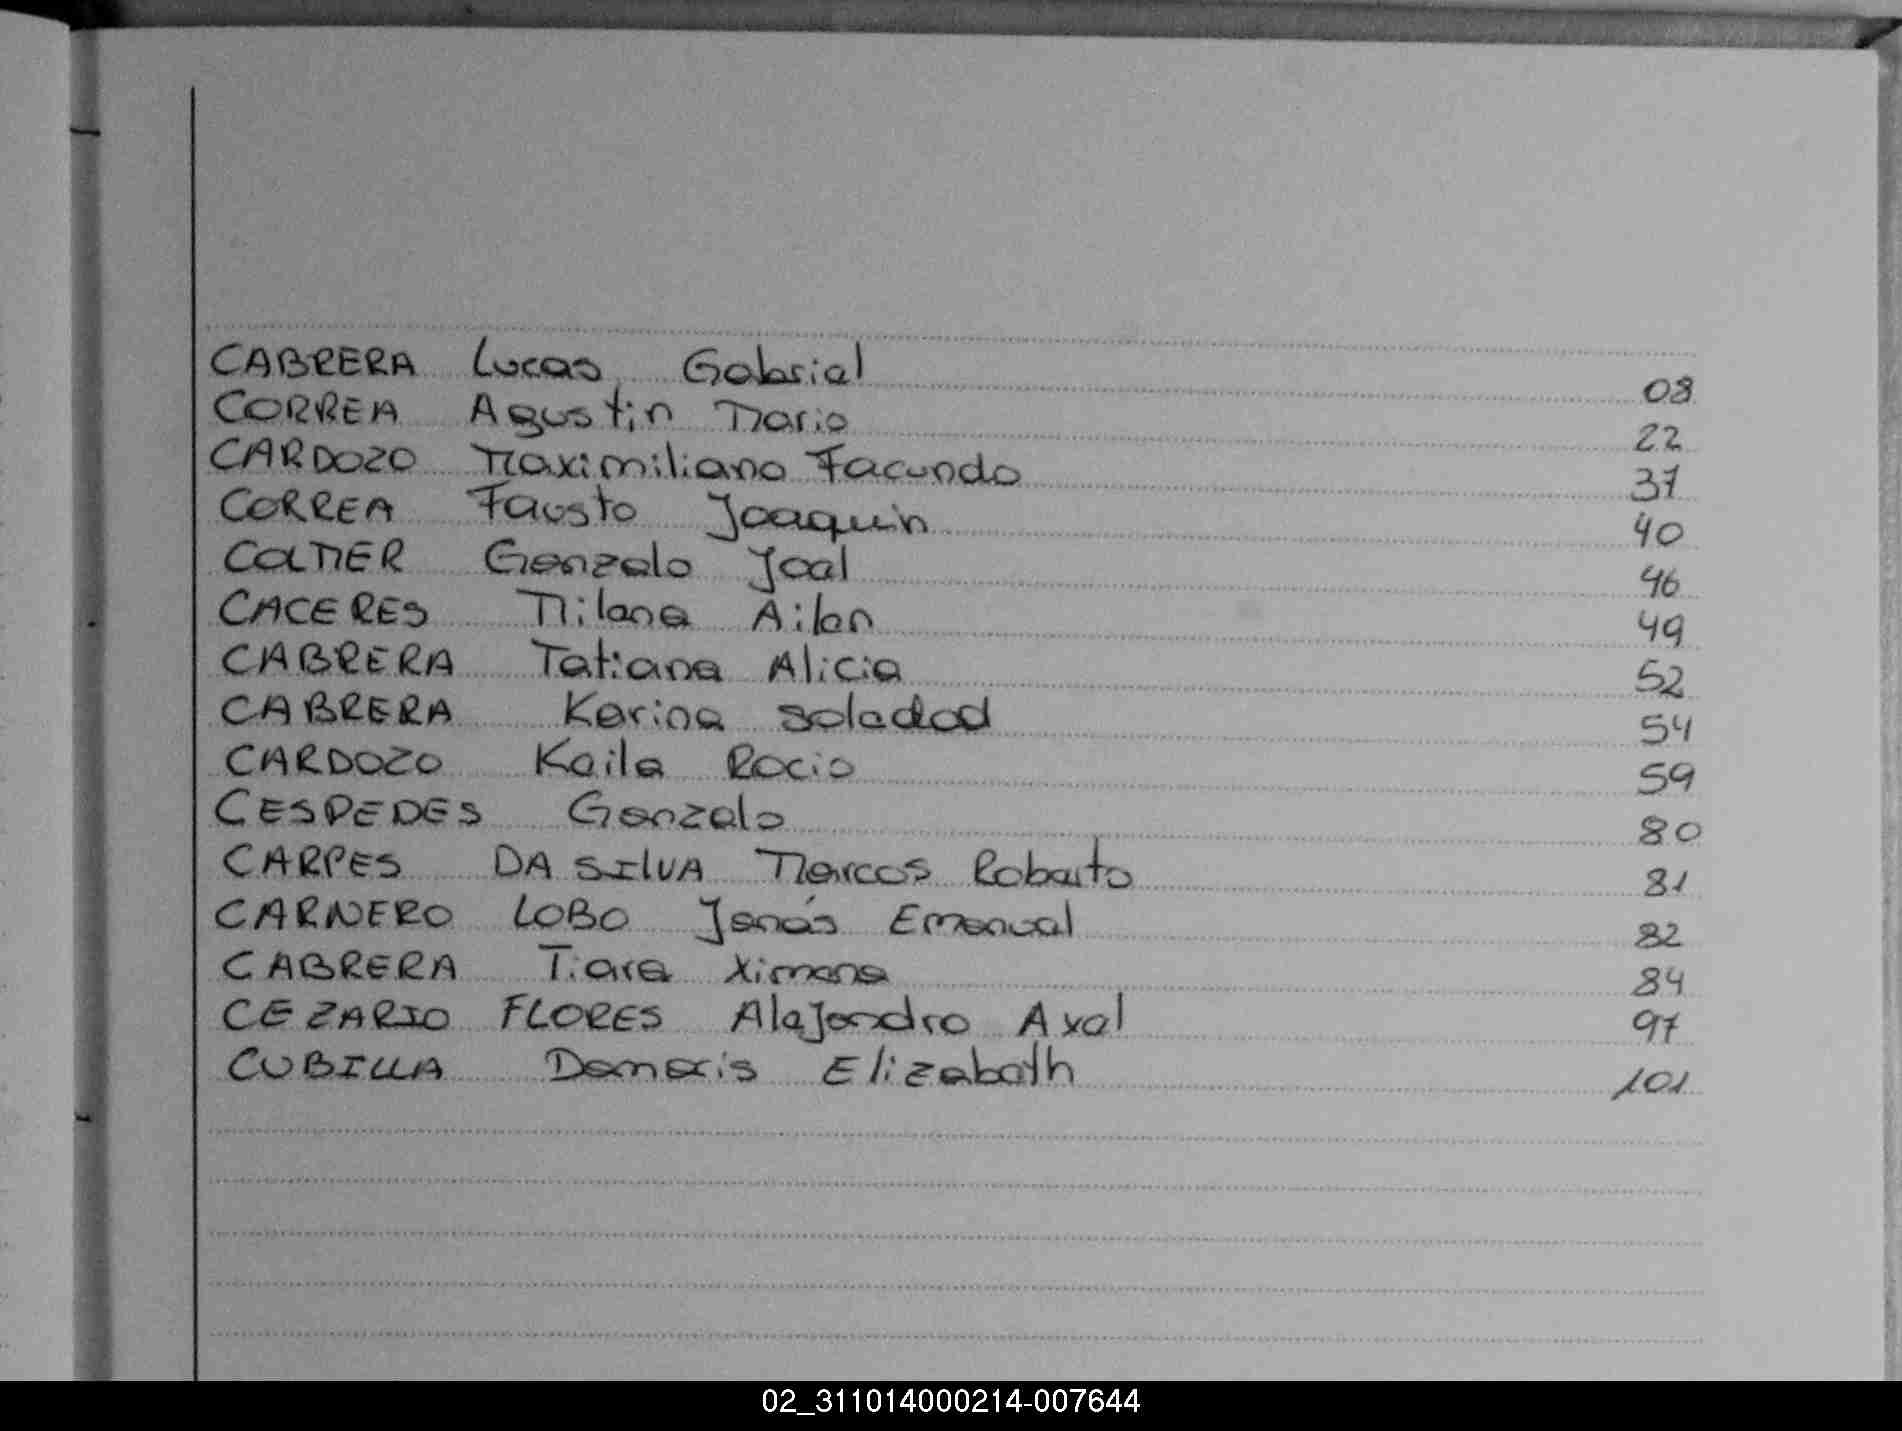 CABRERA Lucas Gabriel 08
CORREA Agustin Mario 22
CARDOZO Maximiliano Facundo 37
CORREA Fausto Joaquin 40
COLMER Gonzalo Joel 46
CACERES Milana Ailen 49
CABRERA Tatiana Alicia 52
CABRERA Karina Soledad 54
CARDOZO Keila Rocio 59
CESPEDES Gonzalo 80
CARPES DA SILVA Marcos Roberto 81
CARNERO LOBO Jonás Emanuel 82
CABRERA Tiara Ximena 84
CEZARIO FLORES Alejandro Axel 97
CUBILLA Damaris Elizabeth 101
02_311014000214-007644